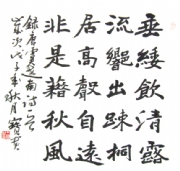 垂緌飲清露
流響出踈桐
居高聲自遠
非是藉秋風
錄唐虞世南詩一首
歲次戊子年秋月